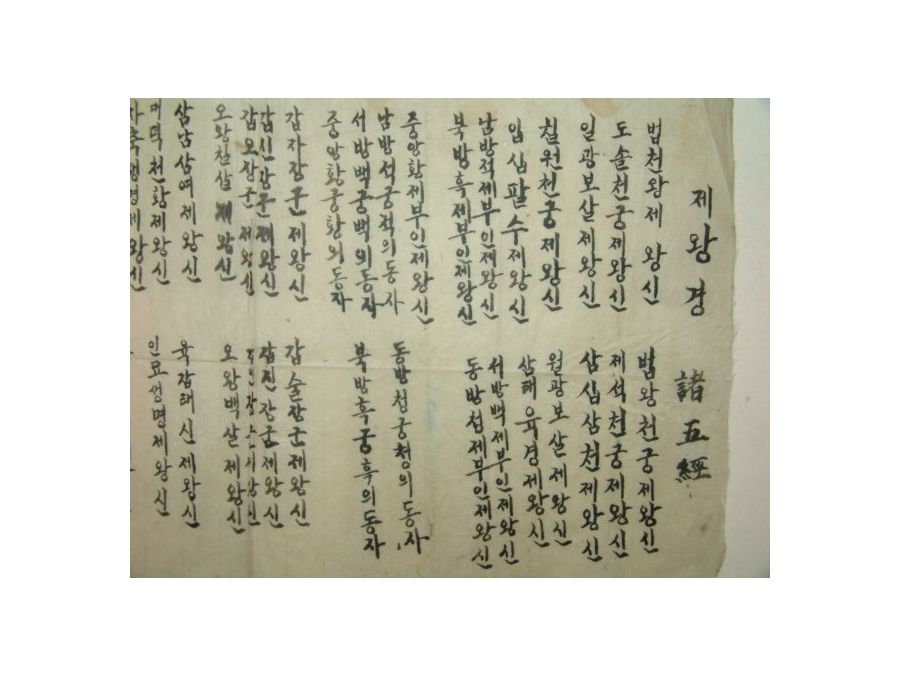 제왕경 諸五經
범천왕제 왕신
범왕천궁제왕신
도솔천궁제왕신
제석천궁제왕신
일광보살제왕신
삼십삼천제왕신
칠원천궁제왕신
원광보살제왕신
임십팔수제왕신
삼태육경제왕신
남방적제부인제왕신
서방백제부인제왕신
북방흑제부인제왕신
동방청제부인제왕신
중앙황제부인제왕신
동방청궁청의동자
남방석궁적의동자
서방백궁백의동자
북방흑궁흑의동자
중앙황궁황의동자
갑자장군제왕신
갑술장군제왕신
갑신장군제왕신
갑진장군제왕신
갑오장군제왕신
오왕천살제왕신
오왕백살제왕신
삼남삼여제왕신
육감태신제왕신
천황제왕신
인묘생명제왕신